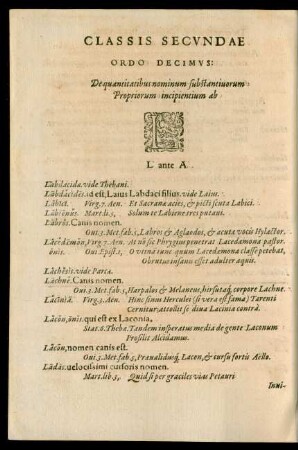 CLASSIS SECVNDAE
ORDO DECIMVS:
De quantitatibus nominum substantiuorum
Propriorum incipientium ab
L
L ante A.
Labdacida. vide Thebani.
Labdacidēs. id est, Laius Labdaci filius. vide Laius.
Labici. Virg. 7. Aen. Et Sacranæ acies, & picti scuta Labici.
Labienus. Mart. li. 5, Solum te Labiene tres putant.
Labros. Canis nomen.
Oui. 3. Met. fab. 5, Labros & Aglaodos, & acutæ vocis Hylactor.
Lacedæmon, Virg. 7. Aen. At nō sic Phrygius penetrat Lacedæmona pastor.
Oui Epist. 1, O vtinā tunc quum Lacedæmona classe petebat,
Obrutus insanis esset adulter aquis.
Lachesis. vide Parca.
Lachne. Canis nomen.
Oui. 3. Met. fab. 5, Harpalos & Melaneus, hirsutaq́; corpore Lachne.
Lacinia. Virg. 3. Aen. Hinc sinus Herculei (si vera est fama) Tarenti
Cernitur, attollit se diua Lacinia contrà.
Lacon, onis. qui est ex Laconia.
Stat. 6. Theba. Tandem insperatus media de gente Laconum
Prosilit Alcidamus.
Lacon, nomen canis est.
Oui. 3. Met. fab. 5, Præualidusq́; Lacon, & cursu fortis Aëllo.
Ladas. velocissimi cursoris nomen.
Mart. lib. 5, Quid si per graciles vias Petauri
Inui-